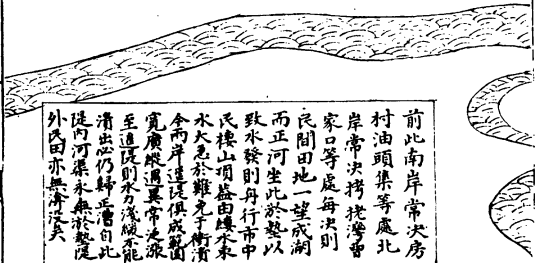 前此南岸常決房
村油頭集等處北
岸常決拷栳灣曹
家口等處每決則
民間田地一望成湖
而正河坐此於墊以
致水發則舟行市中
民棲山頂蓋由縷水東
水太急於難免于衝潰
今兩岸遥隄俱成範圍
寬廣縱遇異常泛漲
至遥隄則水力淺緩不能
潰出必仍歸正漕自此
隄内河渠永無於墊隄
外民田亦無渰没矣